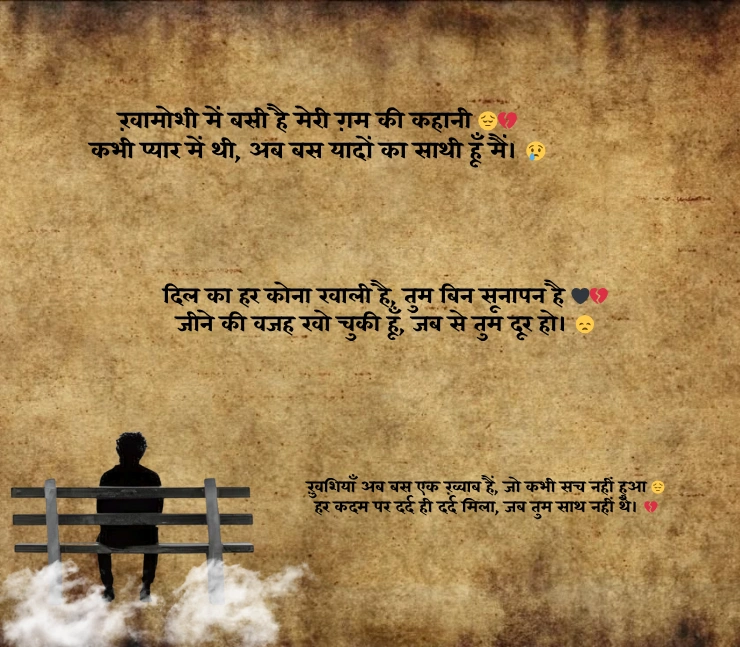 ख़ामोशी में बसी है मेरी ग़म की कहानी 😔💔
कभी प्यार में थी, अब बस यादों का साथी हूँ मैं। 😢
दिल का हर कोना खाली है, तुम बिन सूनापन है 🖤💔
जीने की वजह खो चुकी हूँ, जब से तुम दूर हो। 😞
ख़ुशियाँ अब बस एक ख़्वाब हैं, जो कभी सच नहीं हुआ 😔
हर कदम पर दर्द ही दर्द मिला, जब तुम साथ नहीं थे। 💔